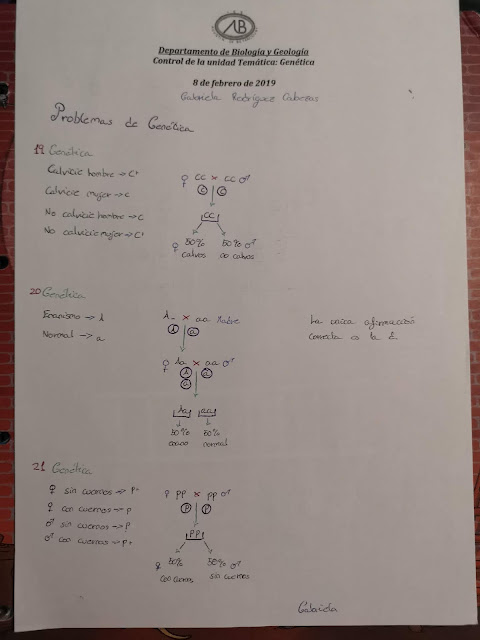 AB
Departamento de Biología y Geología
Control de la unidad Temática: Genética
8 de febrero de 2019
Gabriela Rodríguez Cabezas
Problemas de Genética
19 Genética
Calvicie hombre → C'
Calvicie mujer → c
No calvicie hombre → c
No calvicie mujer → C'
♀ CC × CC ♂
C C
CC
♀ 50% 50% ♂
calvos no calvos
20 Genética
Enanismo → A
Normal → a
A_ × aa Madre
A a
♀ Aa × aa ♂
A a
a
Aa aa
50% 50%
enano normal
La única afirmación
correcta es la E
21 Genética
♀ sin cuernos → P+
♀ con cuernos → P
♂ sin cuernos → P
♂ con cuernos → P+
♀ PP × PP ♂
P P
PP
♀ 50% 50% ♂
con cuernos sin cuernos
Gabriela